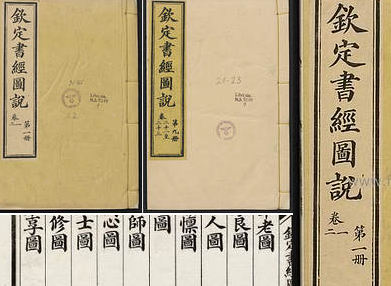 欽定書經圖說
卷一
二
第一冊
欽定書經圖說
卷二十一至
二十三
第九冊
21-23
欽定書經圖說
卷一
二
第一冊
欽定書經圖
老圖
良圖
人圖
懍圖
圖
師圖
心圖
士圖
修圖
享圖